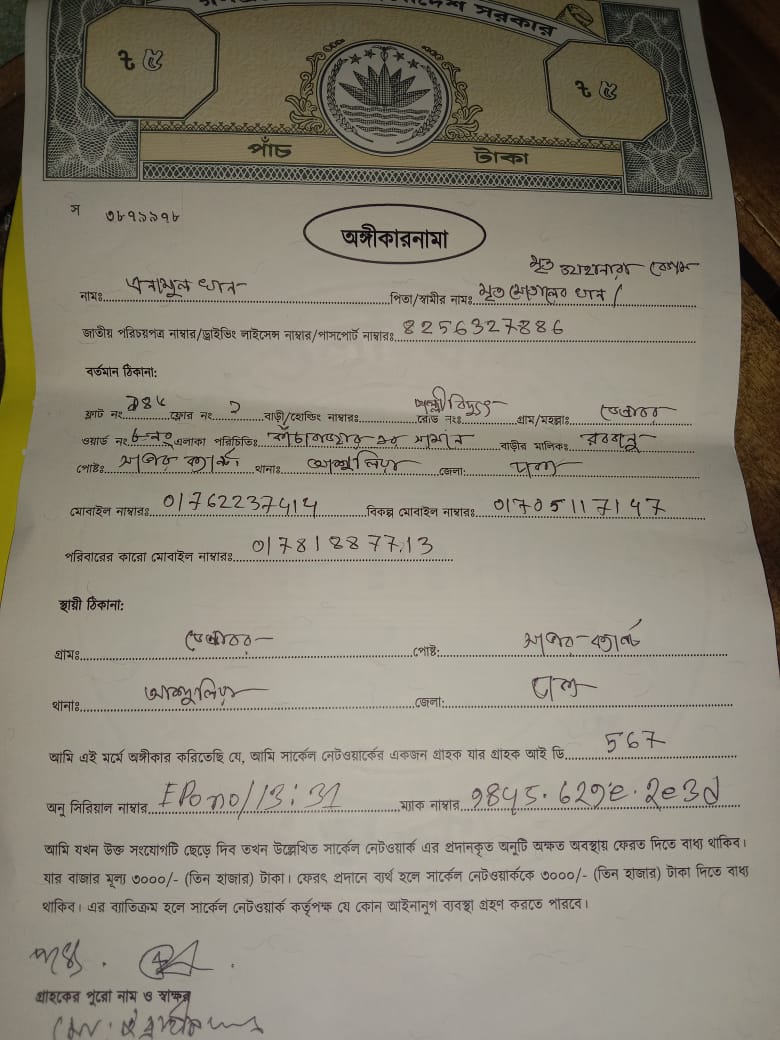 বাংলাদেশ সরকার
৳ ৫ ৳ ৫
পাঁচ টাকা
স ৩৮৭৯৯৭৮
অঙ্গীকারনামা
মৃত জাহানারা বেগম
নামঃ এনামুল খান পিতা/স্বামীর নামঃ মৃত মোতালেব খান /
জাতীয় পরিচয়পত্র নাম্বার/ড্রাইভিং লাইসেন্স নাম্বার/পাসপোর্ট নাম্বারঃ 8256327886
বর্তমান ঠিকানা:
ফ্লাট নং ফ্লোর নং ২ বাড়ী/হোল্ডিং নাম্বারঃ পল্লী বিদ্যুৎ রোড নংঃ গ্রাম/মহল্লাঃ
ওয়ার্ড নং ৮নং এলাকা পরিচিতিঃ বাড়ীর মালিকঃ
পোষ্টঃ থানাঃ আশুলিয়া জেলা: ঢাকা
মোবাইল নাম্বারঃ 01762237414 বিকল্প মোবাইল নাম্বারঃ 01705117147
পরিবারের কারো মোবাইল নাম্বারঃ 01781887713
স্থায়ী ঠিকানা:
গ্রামঃ পোষ্ট:
থানাঃ আশুলিয়া জেলা: ঢাকা
আমি এই মর্মে অঙ্গীকার করিতেছি যে, আমি সার্কেল নেটওয়ার্কের একজন গ্রাহক যার গ্রাহক আই ডি 567
অনু সিরিয়াল নাম্বার EPono/13:31 ম্যাক নাম্বার 9845.629e.2e3d
আমি যখন উক্ত সংযোগটি ছেড়ে দিব তখন উল্লেখিত সার্কেল নেটওয়ার্ক এর প্রদানকৃত অনুটি অক্ষত অবস্থায় ফেরত দিতে বাধ্য থাকিব।
যার বাজার মূল্য ৩০০০/- (তিন হাজার) টাকা। ফেরৎ প্রদানে ব্যর্থ হলে সার্কেল নেটওয়ার্ককে ৩০০০/- (তিন হাজার) টাকা দিতে বাধ্য
থাকিব। এর ব্যাতিক্রম হলে সার্কেল নেটওয়ার্ক কর্তৃপক্ষ যে কোন আইনানুগ ব্যবস্থা গ্রহণ করতে পারবে।
গ্রাহকের পুরো নাম ও স্বাক্ষর